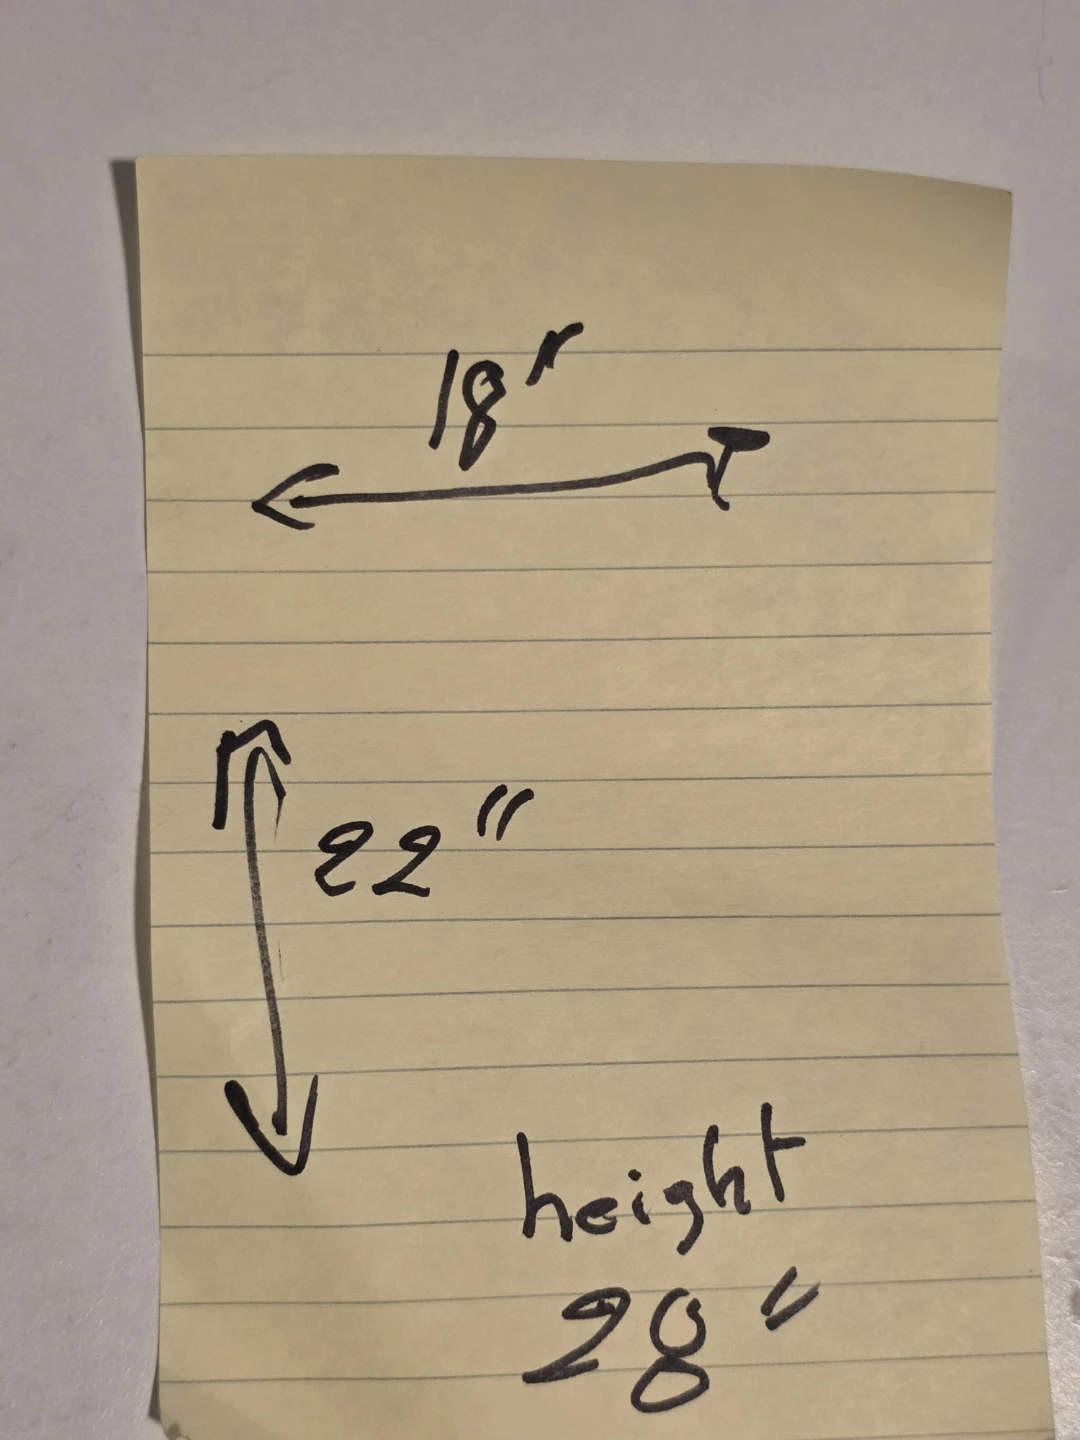 18"
22"
height
28"